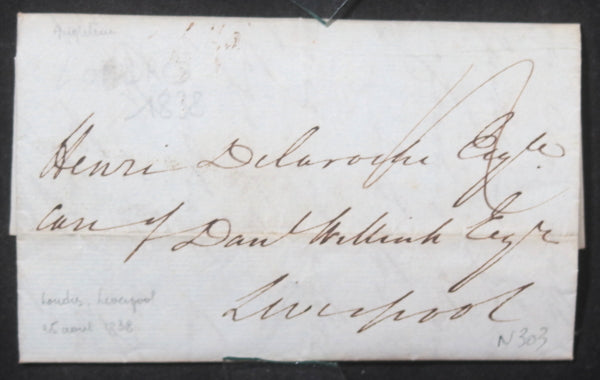 Angleterre
1838
Henri Delaroche Esqre.
care of Danl Willink Esqre
Liverpool
Londres, Liverpool
25 aout 1838
N303